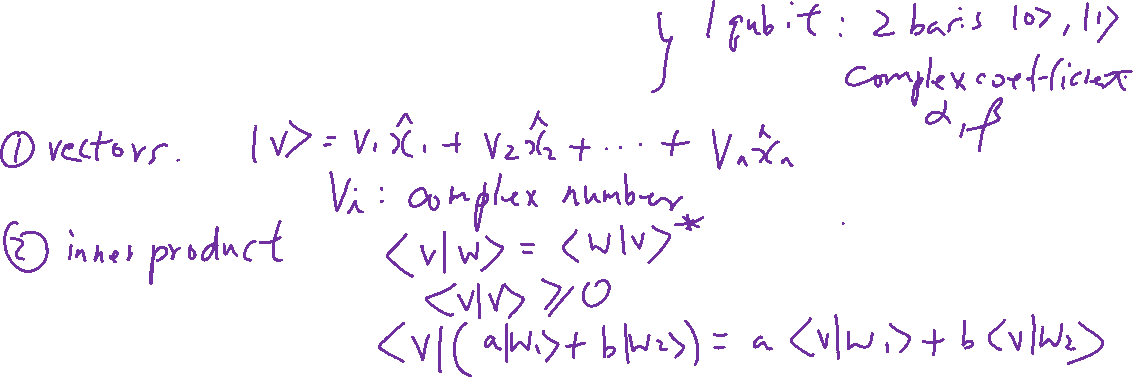 1 qubit : 2 basis |0>, |1>
complex coefficient
α, β
① vectors. |v> = v₁x̂₁ + v₂x̂₂ + ··· + vₙx̂ₙ
Vᵢ : complex number
② inner product <v|w> = <w|v>*
<v|v> ⩾ 0
<v|( a|w₁> + b|w₂>) = a <v|w₁> + b <v|w₂>